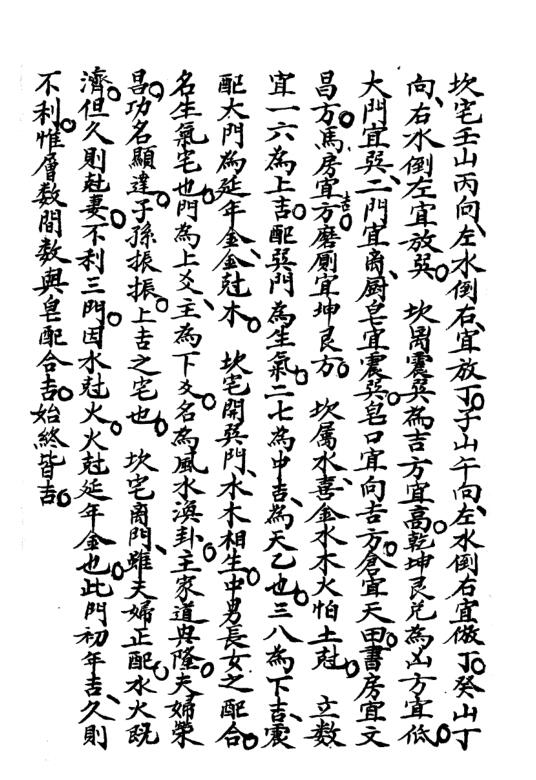 坎宅壬山丙向、左水倒右、宜放丁。子山午向、左水倒右宜放丁。癸山丁
向、右水倒左宜放巽。　坎离震巽為吉方宜高。乾坤艮兑為凶方宜低。
大門宜巽、二門宜离、厨皂宜震巽。皂口宜向吉方。倉宜天田。書房宜文
昌方。馬房宜吉方。磨厠宜坤艮方。　坎属水、喜金水木火怕土尅。　立数
宜一六為上吉。配巽門為生氣。二七為中吉、為天乙也。三八為下吉、震
配大門為延年金、金尅木。　坎宅開巽門、水木相生。中男長女之配合。
名生氣宅也。門為上爻、主為下爻。名為風水渙卦。主家道興隆。夫婦榮
昌。功名顯達。子孫振振。上吉之宅也。　坎宅离門、雖夫婦正配。水火既
濟。但久則尅妻。不利三門。因水尅火。火尅延年金也。此門初年吉、久則
不利。惟層数間数與皂配合吉。始終皆吉。